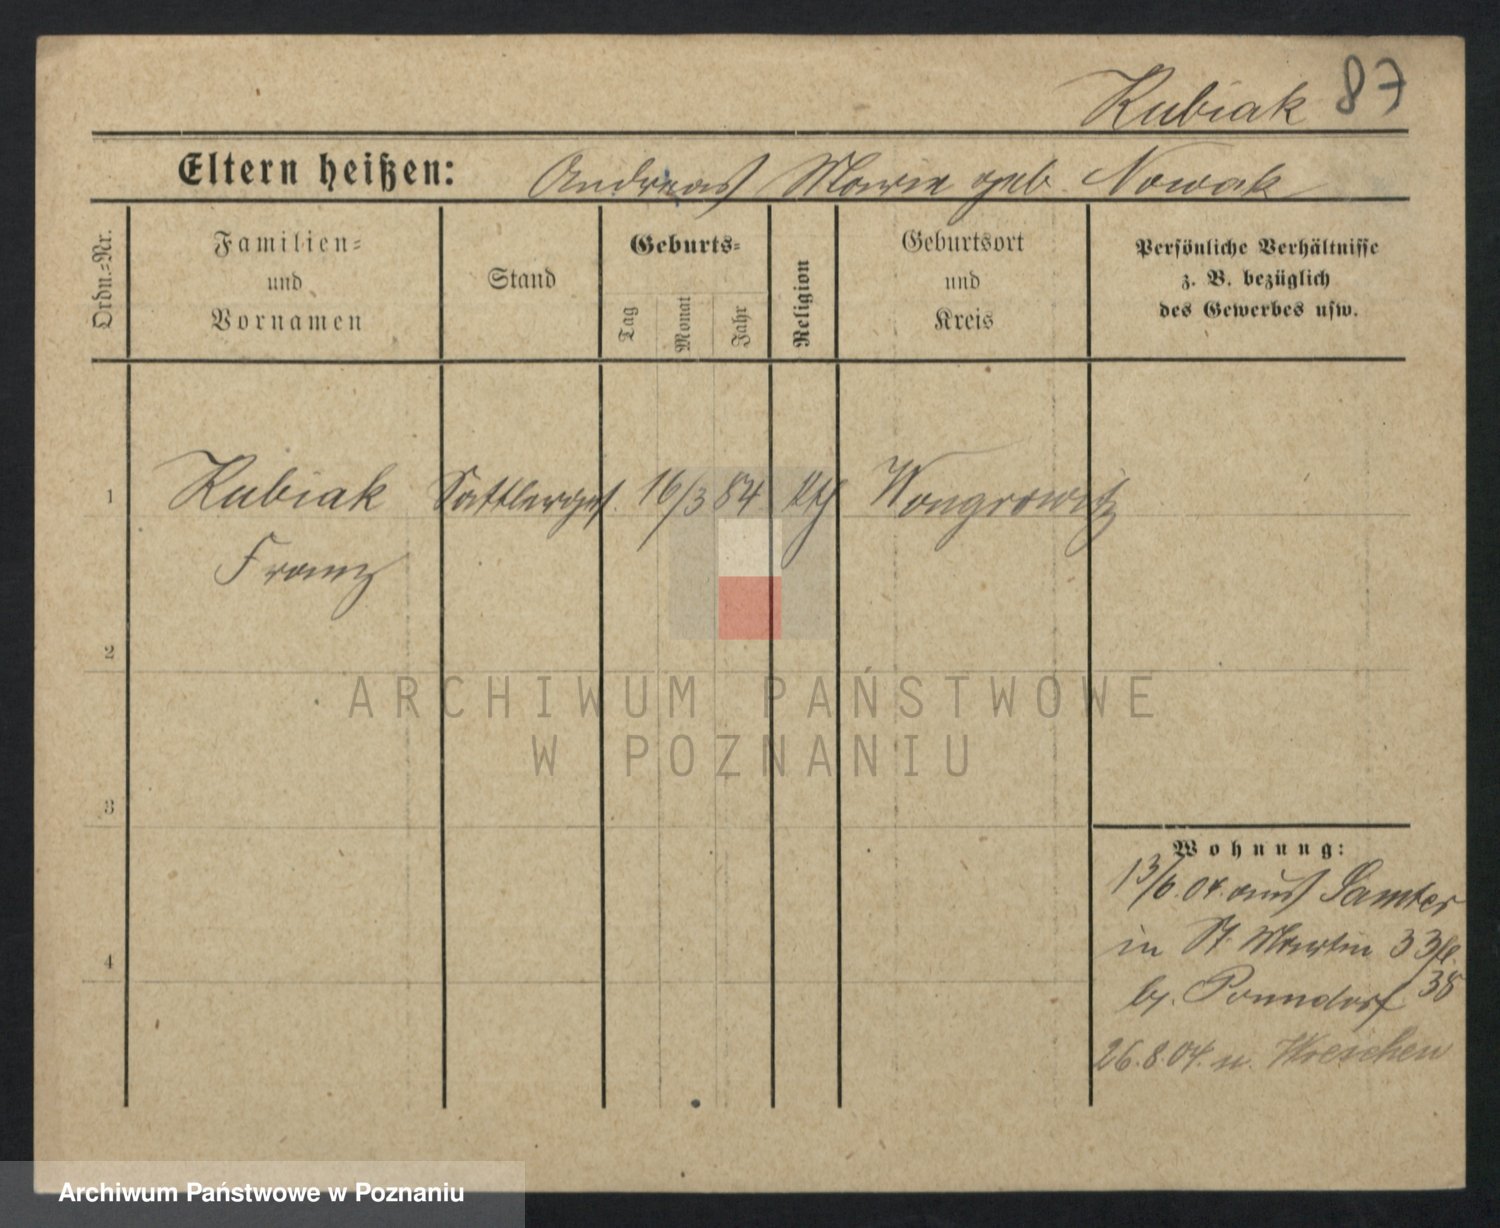 Kubiak 87
Eltern heißen: Andreas Marie geb. Nowak
Ordn.=Nr.
Familien=
und
Vornamen
Stand
Geburts=
Tag
Monat
Jahr
Religion
Geburtsort
und
Kreis
Persönliche Verhältnisse
z. B. bezüglich
des Gewerbes usw.
1 Kubiak Sattlerges. 16/3 84 kth Wongrowitz
Franz
2
ARCHIWUM PAŃSTWOWE
W POZNANIU
3
Wohnung:
13/6.04. aus Samter
in St. Martin 33
4
by. Ponndorf 38
26.8.04. n. Wreschen
Archiwum Państwowe w Poznaniu